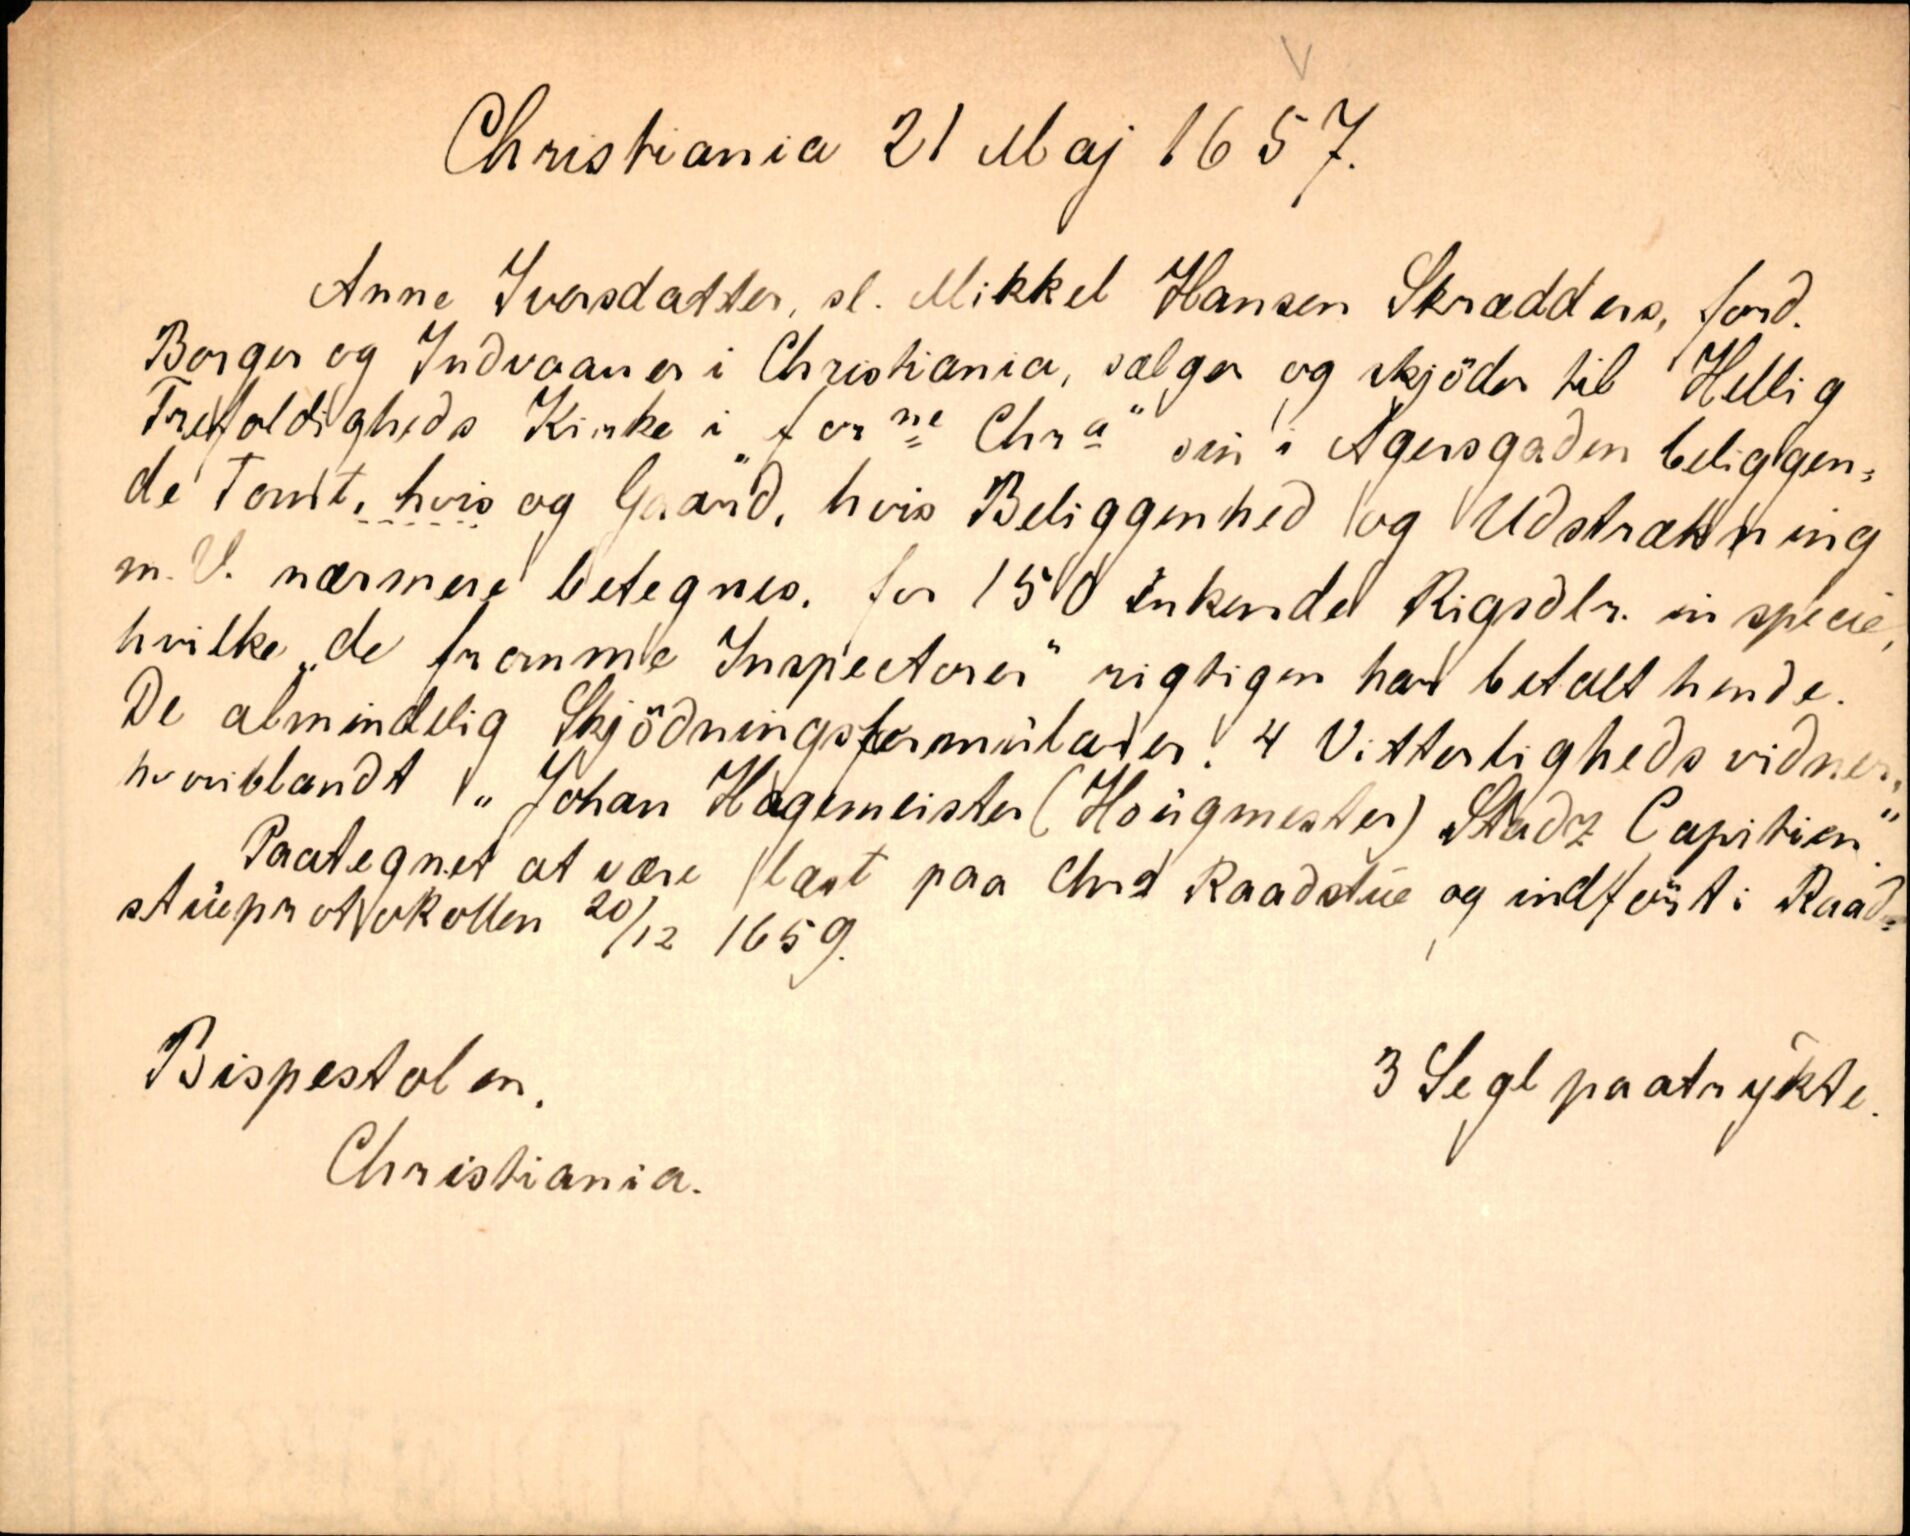 Christiania 21 Maj 1657.
Anne Iversdatter, sl. Mikkel Hansen Skrædders, ford.
Borger og Indvaaner i Christiania, sælger og skjöder til Hellig
Trefoldigheds Kirke i „forne Chra“ sin i Agersgaden beliggen=
de Tomt, hvis og Gaard, hvis Beliggenhed og Udstrækning
m. V. nærmere betegnes, for 150 enkende Rigsdlr. in specie,
hvilke „de fromme Inspectorer“ rigtigen har betalt hende.
De almindelig Skjödningsformularer. 4 Vitterlighedsvidner,
hvoriblandt „Johan Hagemeister (Hougmester) Stadz Capitien“.
Paategnet at være læst paa Chra Raadstue og indfört i Raad=
stueprotokollen 20/12 1659.
Bispestolen.
3 Segl paatrykte.
Christiania.